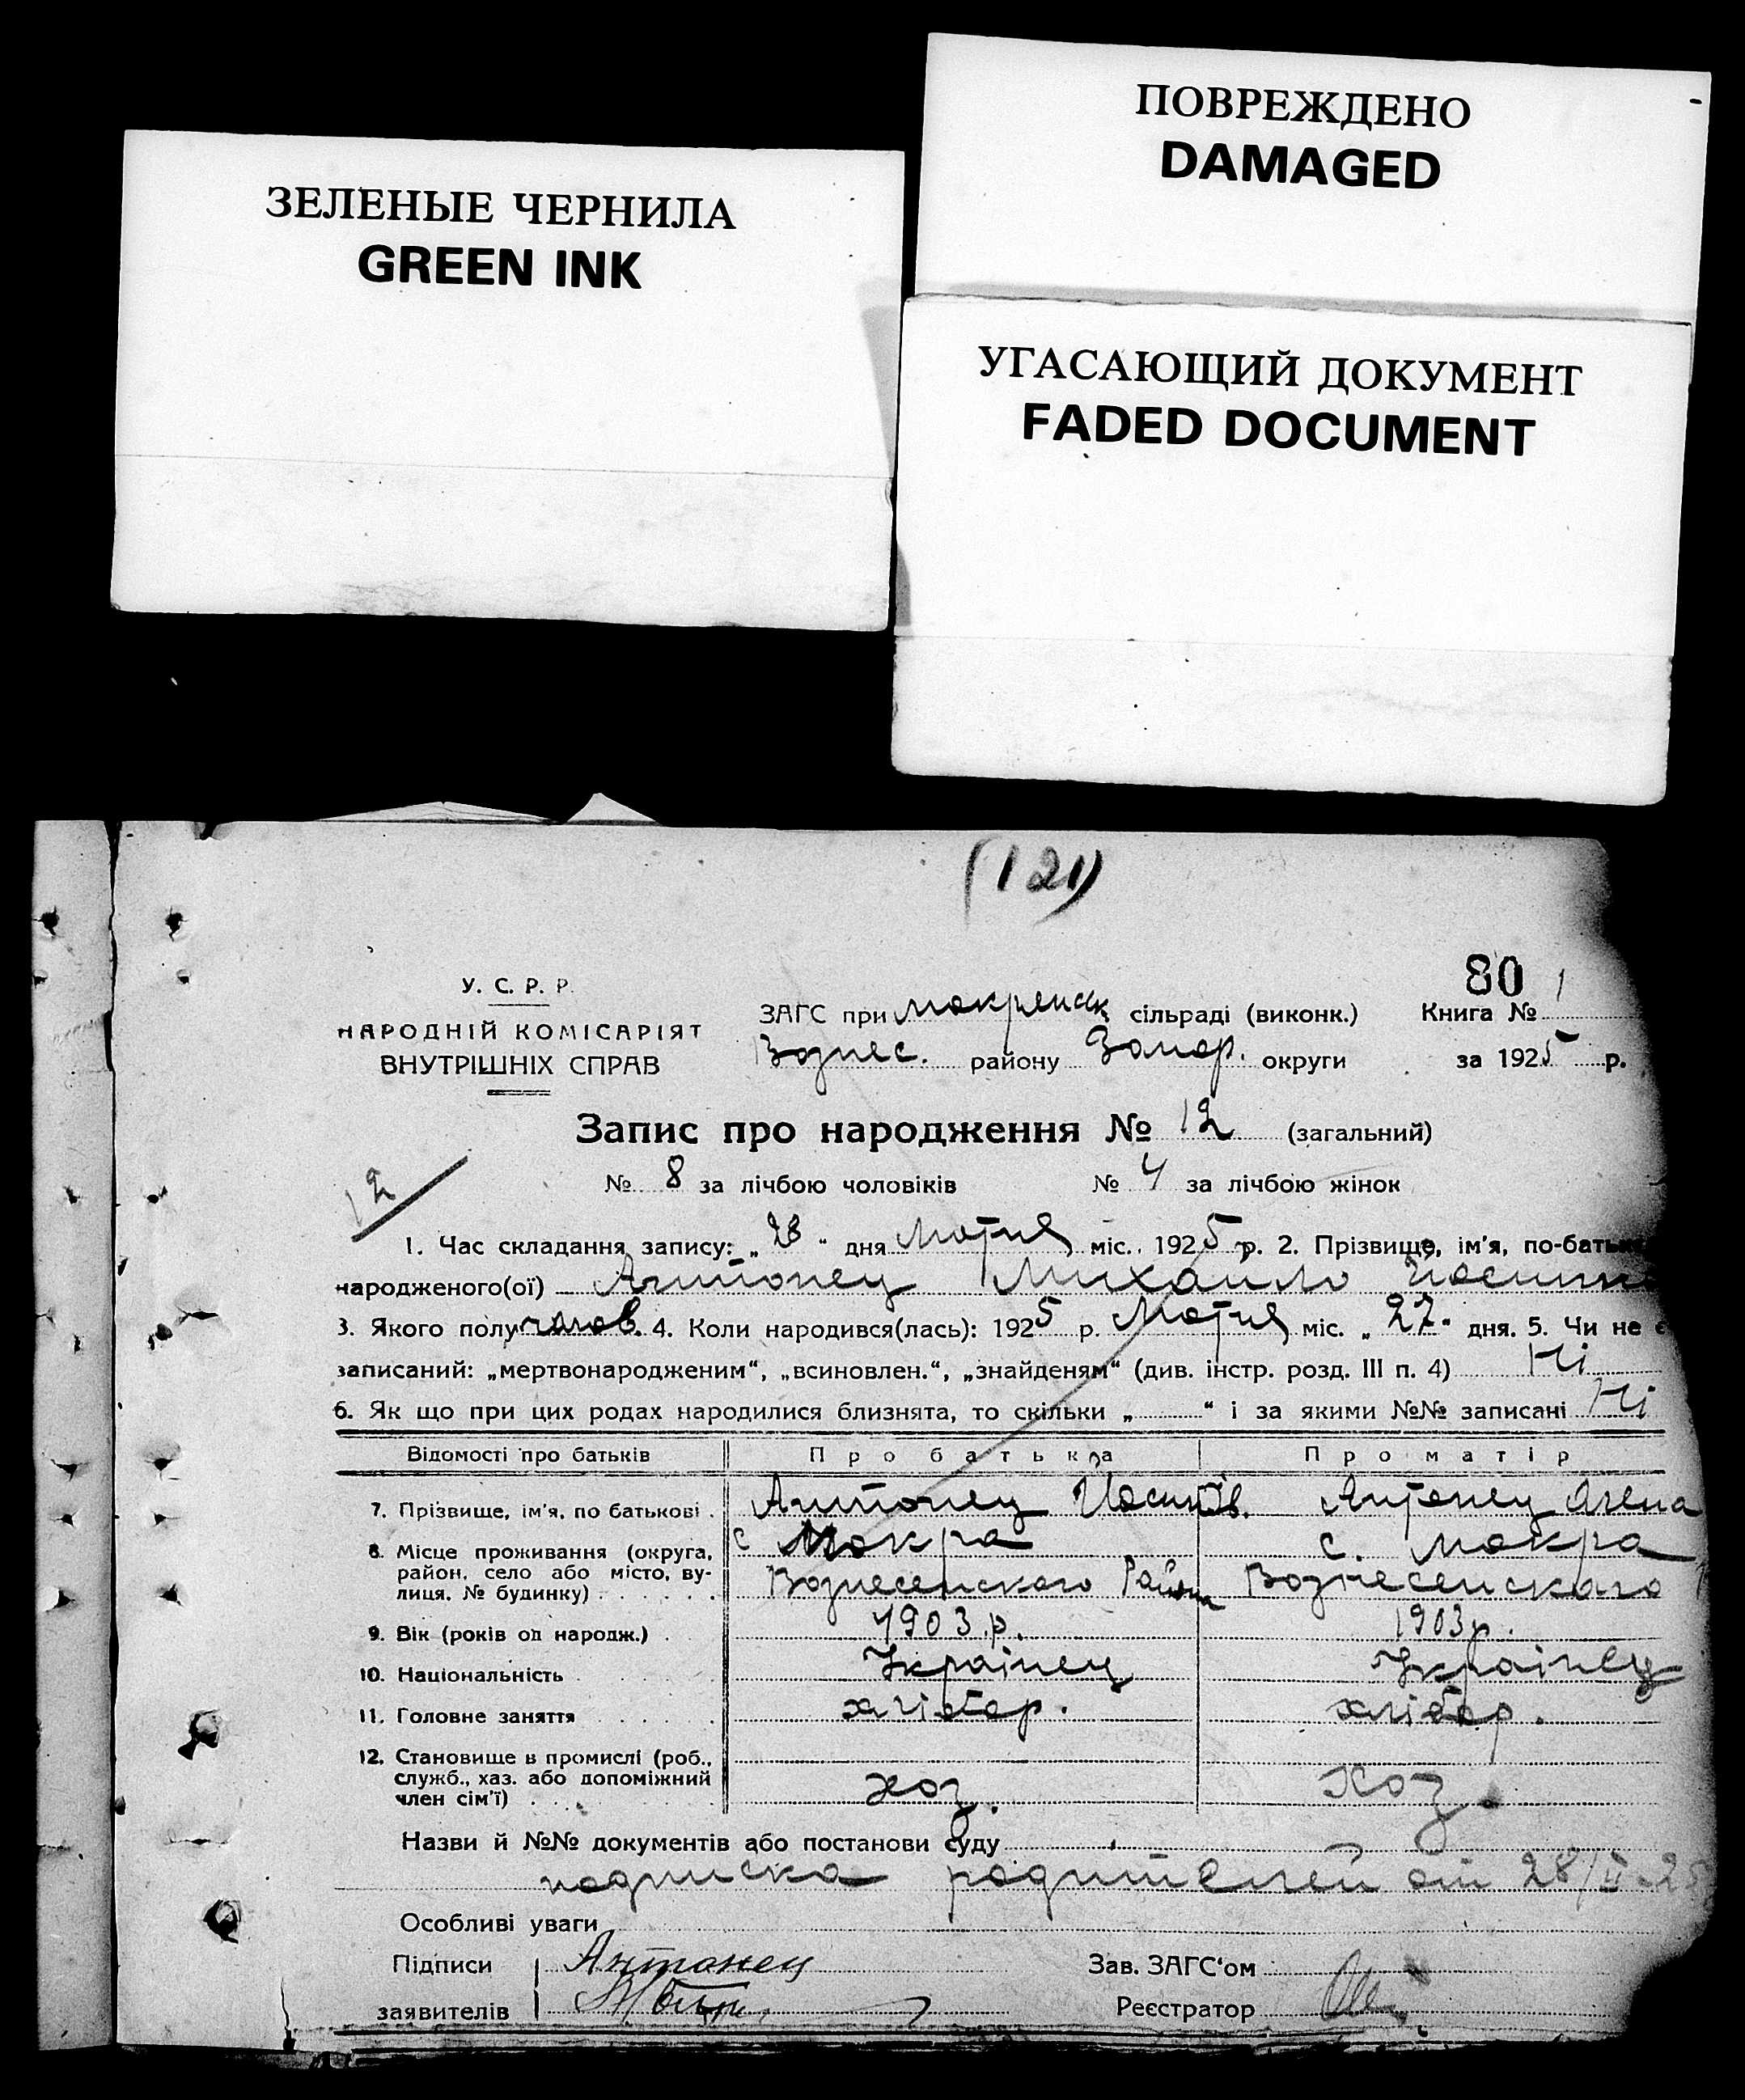 ПОВРЕЖДЕНО
DAMAGED
ЗЕЛЕНЫЕ ЧЕРНИЛА
GREEN INK
УГАСАЮЩИЙ ДОКУМЕНТ
FADED DOCUMENT
(121)
80
У. С. Р. Р.
НАРОДНІЙ КОМІСАРІЯТ
ВНУТРІШНІХ СПРАВ
ЗАГС при мокрянск сільраді (виконк.) Книга № 1
Вознес. району Запор. округи за 1925 р.
Запис про народження № 12 (загальний)
№ 8 за лічбою чоловіків № 4 за лічбою жінок
12
1. Час складання запису: „28“ дня Лютня міс. 1925 р. 2. Прізвище, ім'я, по-батьк
народженого(ої) Антонец Михайло
3. Якого полу чолов. 4. Коли народився(лась): 1925 р. Лютня міс. „27“ дня. 5. Чи не є
записаний: „мертвонародженим“, „всиновлен.“, „знайденям“ (див. інстр. розд. III п. 4) Ні
6. Як що при цих родах народилися близнята, то скільки „ “ і за якими №№ записані Ні
Відомості про батьків Про батька Про матір
7. Прізвище, ім'я, по батькові. Антонец Антонец
8. Місце проживання (округа, с Мокра с. Мокра
район, село або місто, ву-
лиця, № будинку) Вознесенского Район Вознесенского
9. Вік (років од народж.) 1903 р. 1903 р.
10. Національність Українец Українец
11. Головне заняття хлібор. хлібор.
12. Становище в промислі (роб.,
служб., хаз. або допоміжний
член сім'ї) хоз. хоз.
Назви й №№ документів або постанови суду
подписка родителей от 28/II-25
Особливі уваги
Підписи Антонец
заявителів
Зав. ЗАГС'ом
Реєстратор